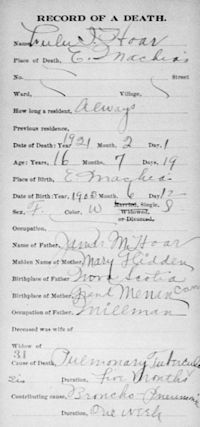 RECORD OF A DEATH.
Name, Lulu I. Hoar
Place of Death, E. Machias
No. Street
Ward, Village,
How long a resident, Always
Previous residence,
Date of Death: Year, 1921 Month, 2 Day, 1
Age: Years, 16 Months, 7 Days, 19
Place of Birth, E Machias
Date of Birth: Year, 190 Month, 6 Day, 12
Sex, F. Color, W Married, Single, Widowed, or Divorced. S
Occupation,
Name of Father, James M. Hoar
Maiden Name of Mother, Mary Gidden
Birthplace of Father, Nova Scotia
Birthplace of Mother, Grand Menan Can
Occupation of Father, Millman
Deceased was wife of
Widow of
31
Cause of Death, Pulmonary Tuberculo
Duration, Five Months
Contributing cause, Broncho Pneumonia
Duration, One week